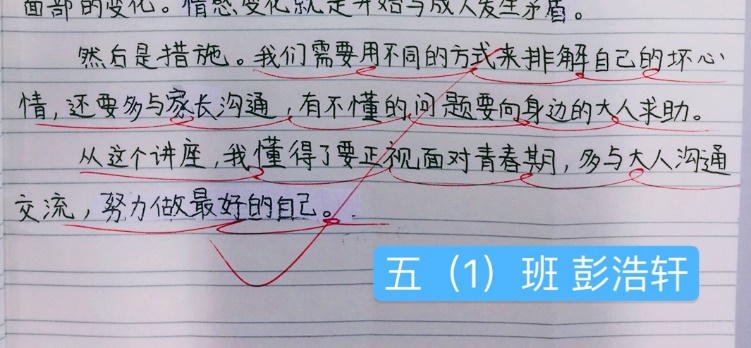 面部的变化。情感变化就是开始与成人发生矛盾。
然后是措施。我们需要用不同的方式来排解自己的坏心
情，还要多与家长沟通，有不懂的问题要向身边的大人求助。
从这个讲座，我懂得了要正视面对青春期，多与大人沟通
交流，努力做最好的自己。
五（1）班 彭浩轩